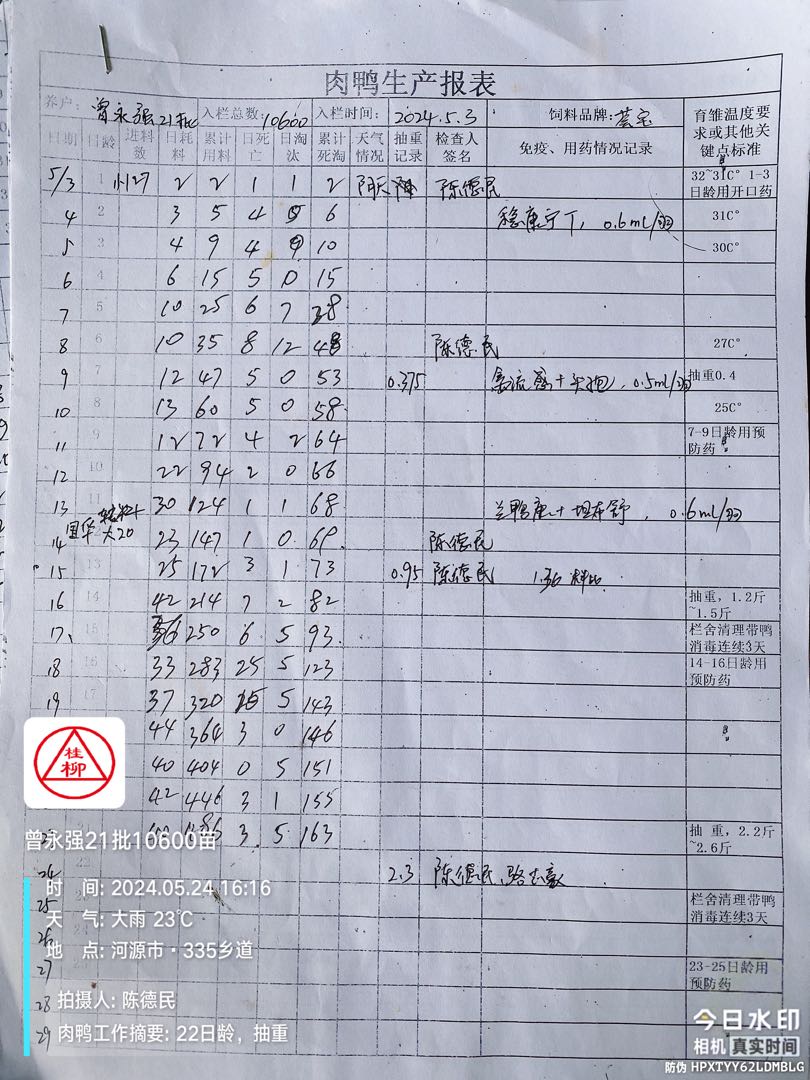 肉鸭生产报表
养户: 曾永强21批 入栏总数: 10600 入栏时间: 2024.5.3 饲料品牌: 育雏温度要求或其他关键点标准
日期 日龄 进料数 日耗料 累计用料 日死亡 日淘汰 累计死淘 天气情况 抽重记录 检查人签名 免疫、用药情况记录
5/3 1 小127 2 2 1 1 2 阴天 陈德民 32~31C° 1-3日龄用开口药
4 2 3 5 4 0 6 稳康宁丁, 0.6ml/羽 31C°
5 3 4 9 4 0 10 30C°
6 4 6 15 5 0 15
7 5 10 25 6 7 28
8 6 10 35 8 12 48 陈德民 27C°
9 7 12 47 5 0 53 0.375 0.5ml/羽 抽重0.4
10 8 13 60 5 0 58 25C°
11 9 12 72 4 2 64 7-9日龄用预防药
12 10 22 94 2 0 66
13 11 30 124 1 1 68 0.6ml/羽
国华 大20
14 23 147 1 0 69 陈德民
15 13 25 172 3 1 73 0.95 陈德民 1.36料比
16 14 42 214 7 2 82 抽重, 1.2斤~1.5斤
17 15 36 250 6 5 93 栏舍清理带鸭消毒连续3天
18 16 33 283 25 5 123 14-16日龄用预防药
19 17 37 320 15 5 143
44 364 3 0 146
40 404 0 5 151
42 446 3 1 155
40 486 3 5 163 抽 重, 2.2斤~2.6斤
24 22 2.3 陈德民、骆志豪
25 栏舍清理带鸭消毒连续3天
26
27 23-25日龄用预防药
28
29
桂柳
曾永强21批10600苗
时 间: 2024.05.24 16:16
天 气: 大雨 23℃
地 点: 河源市·335乡道
拍摄人: 陈德民
肉鸭工作摘要: 22日龄，抽重
今日水印
相机 真实时间
防伪 HPXTYY62LDMBLG